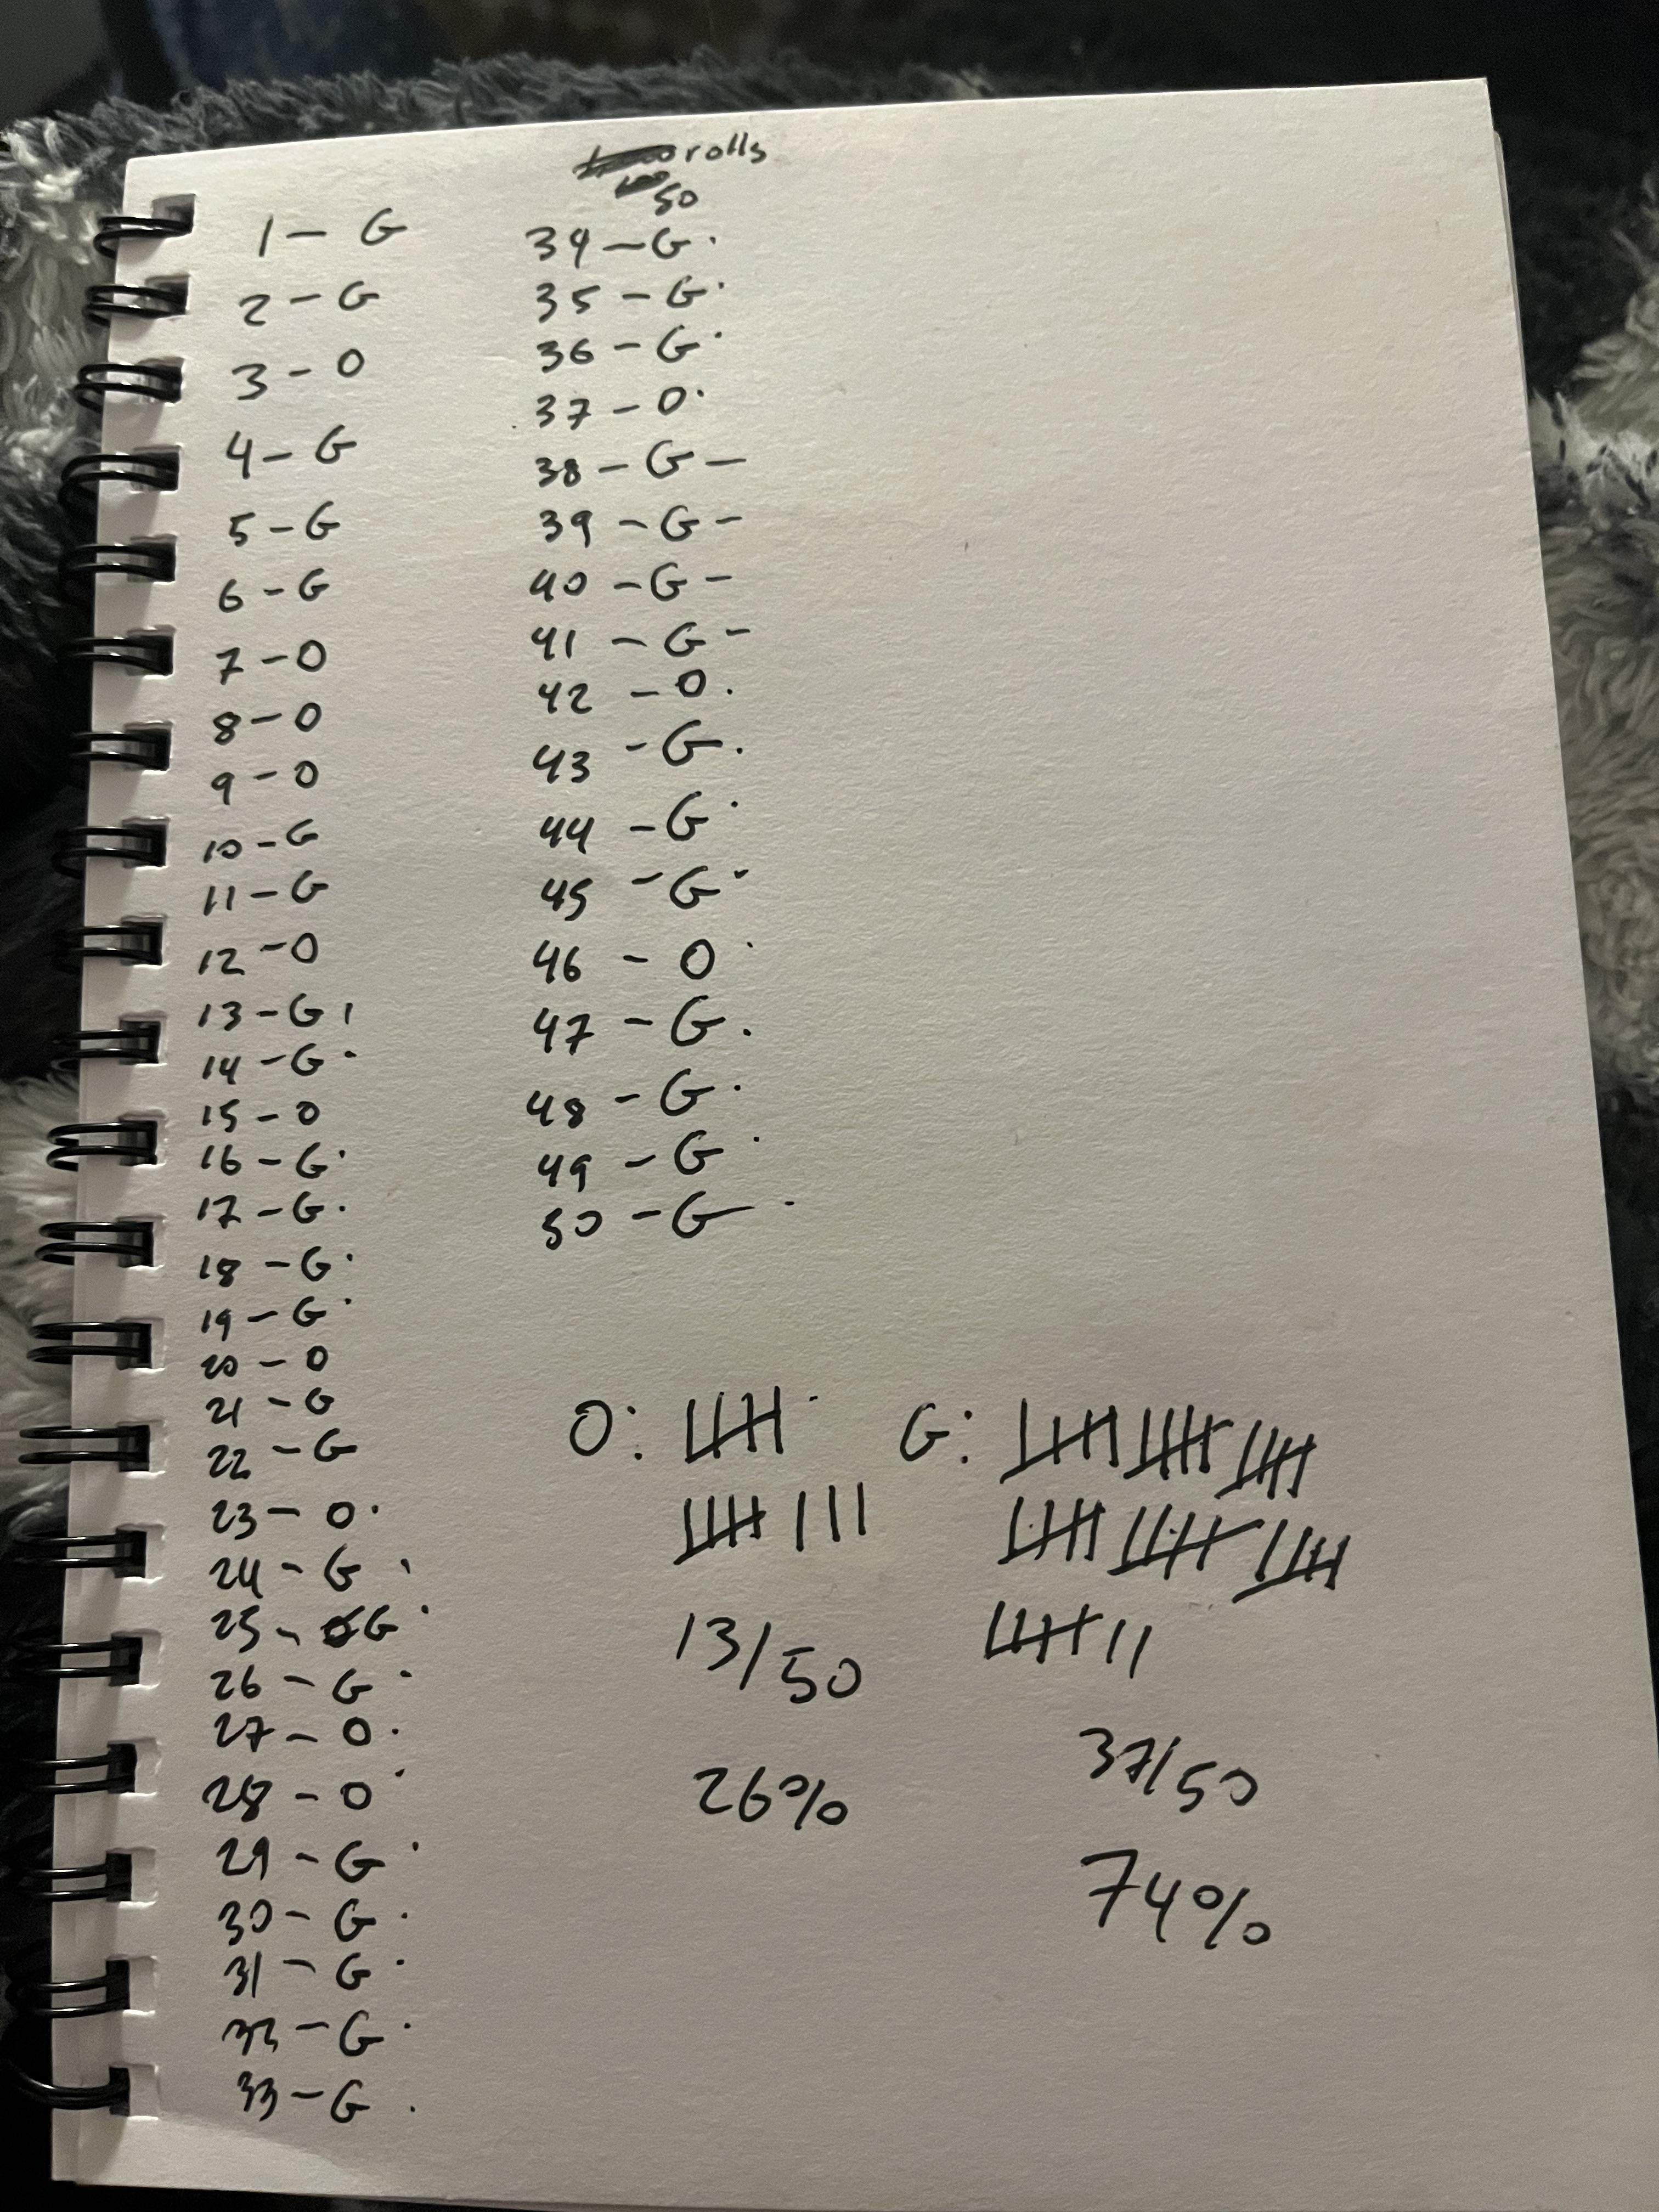 rolls
50
1 - G
2 - G
3 - O
4 - G
5 - G
6 - G
7 - O
8 - O
9 - O
10 - G
11 - G
12 - O
13 - G
14 - G
15 - O
16 - G
17 - G
18 - G
19 - G
20 - O
21 - G
22 - G
23 - O
24 - G
25 - G
26 - G
27 - O
28 - O
29 - G
30 - G
31 - G
32 - G
33 - G
34 - G
35 - G
36 - G
37 - O
38 - G -
39 - G -
40 - G -
41 - G -
42 - O
43 - G
44 - G
45 - G
46 - O
47 - G
48 - G
49 - G
50 - G
O:
13/50
26%
G:
37/50
74%